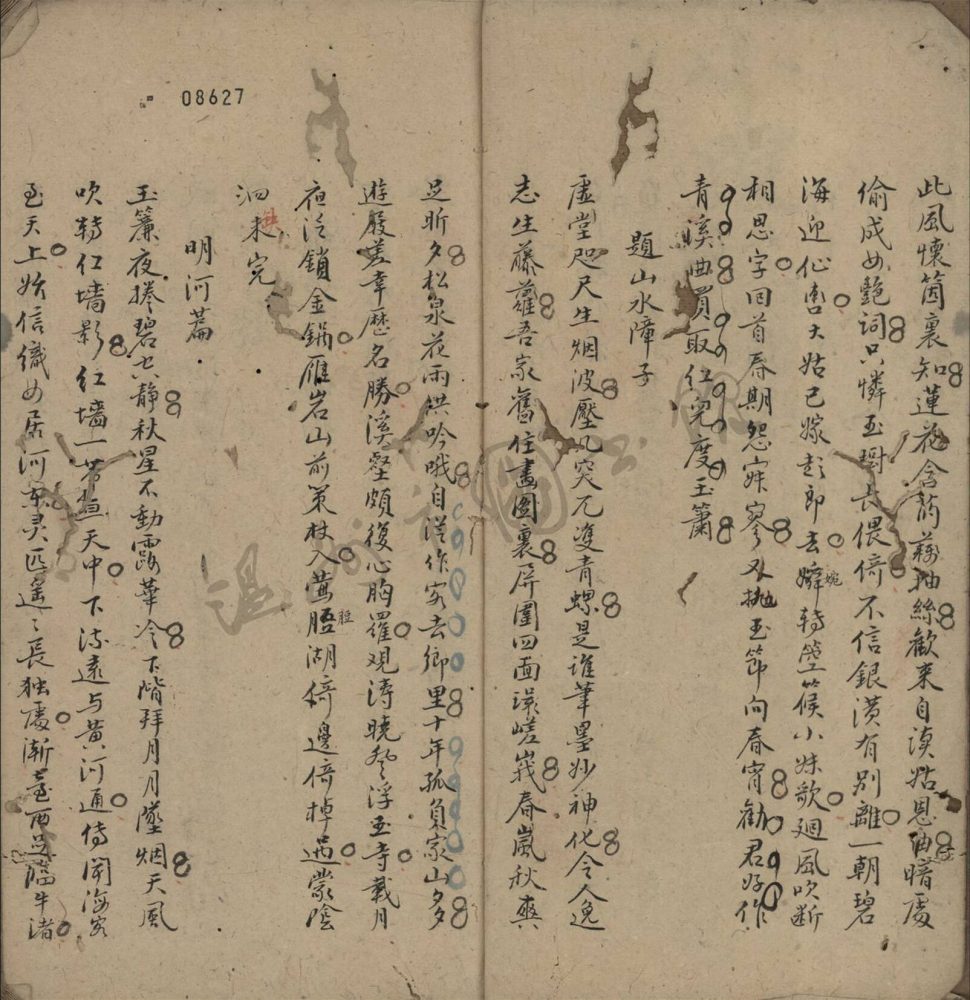 此風懷箇裏知蓮花含菂藕抽絲歡来自湏姑恩曲暗處
偷成女艷詞只憐玉樹長偎倚不信銀潢有别離一朝碧
海迎仙去大姑已嫁彭郎去婉轉箜篌小妹歌廻風吹断
相思字回首春期怨寂寥又抛玉節向春宵勸君好作
青溪曲買取红兒度玉簫
題山水障子
虚堂咫尺生烟波壓几突兀雙青螺是誰筆墨妙神化令人逸
志生藤蘿吾家舊住畫圖裏屏圍四面環嵯峩春嵐秋爽
足昕夕松泉花雨供吟哦自從作客去鄉里十年孤負家山多
遊屐蓋車歷名勝溪壑頗復心胸羅观濤曉登浮玉寺載月
夜泛鎖金鍋雁岩山前策杖入鶯脰湖
邊倚棹過蒙陰
泗来完
明河篇
玉簾夜捲碧空静秋星不動露華冷下階拜月月墜烟天風
吹轉红墙影红墙一带亘天中下流遠与黄河通侍聞海客
至天上始信織女居河東灵匹遥〻長独處漸臺西畔臨牛渚
08627
温
圖